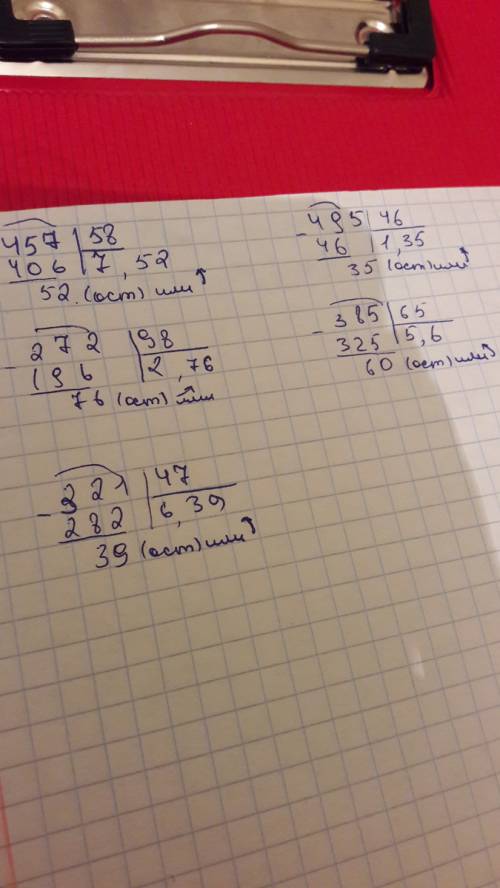 457 | 58
406 | 7,52
52 (ост) или
- 495 | 46
46 | 1,35
35 (ост) или
- 272 | 98
196 | 2,76
76 (ост) или
- 385 | 65
325 | 5,6
60 (ост) или
- 221 | 47
282 | 6,39
39 (ост) или